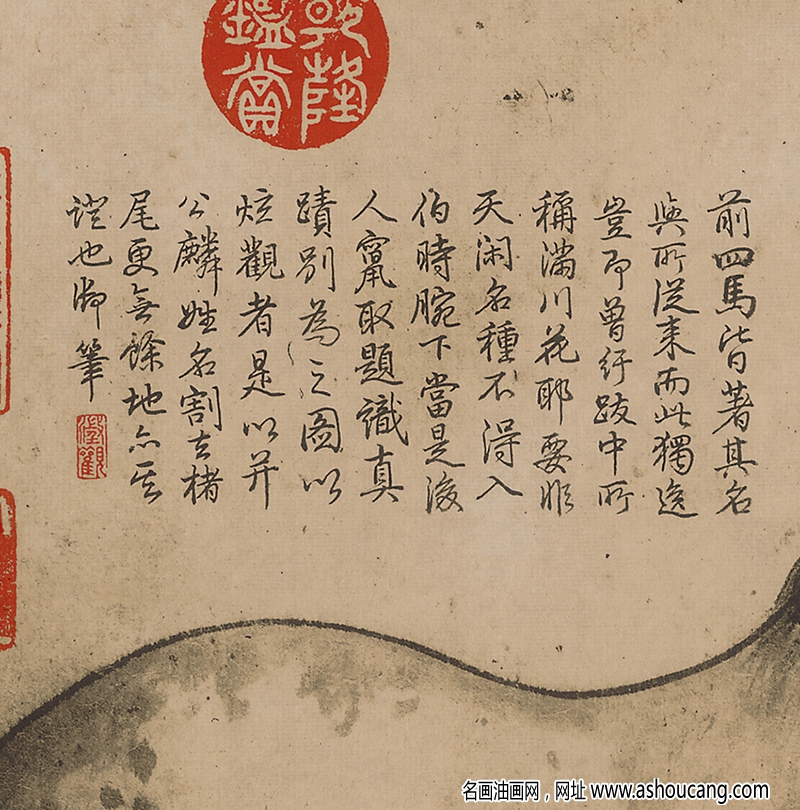 乾隆
鑑賞
前四馬皆著其名
與所從来而此獨逸
豈即曾紆跋中所
稱滿川花耶要非
天閑名種不得入
伯時腕下當是後
人竄取題識真
蹟別為之圖以
炫觀者是以并
公麟姓名割去楮
尾更無餘地亦其
證也御筆
澂觀
名画油画网，网址 www.ashoucang.com